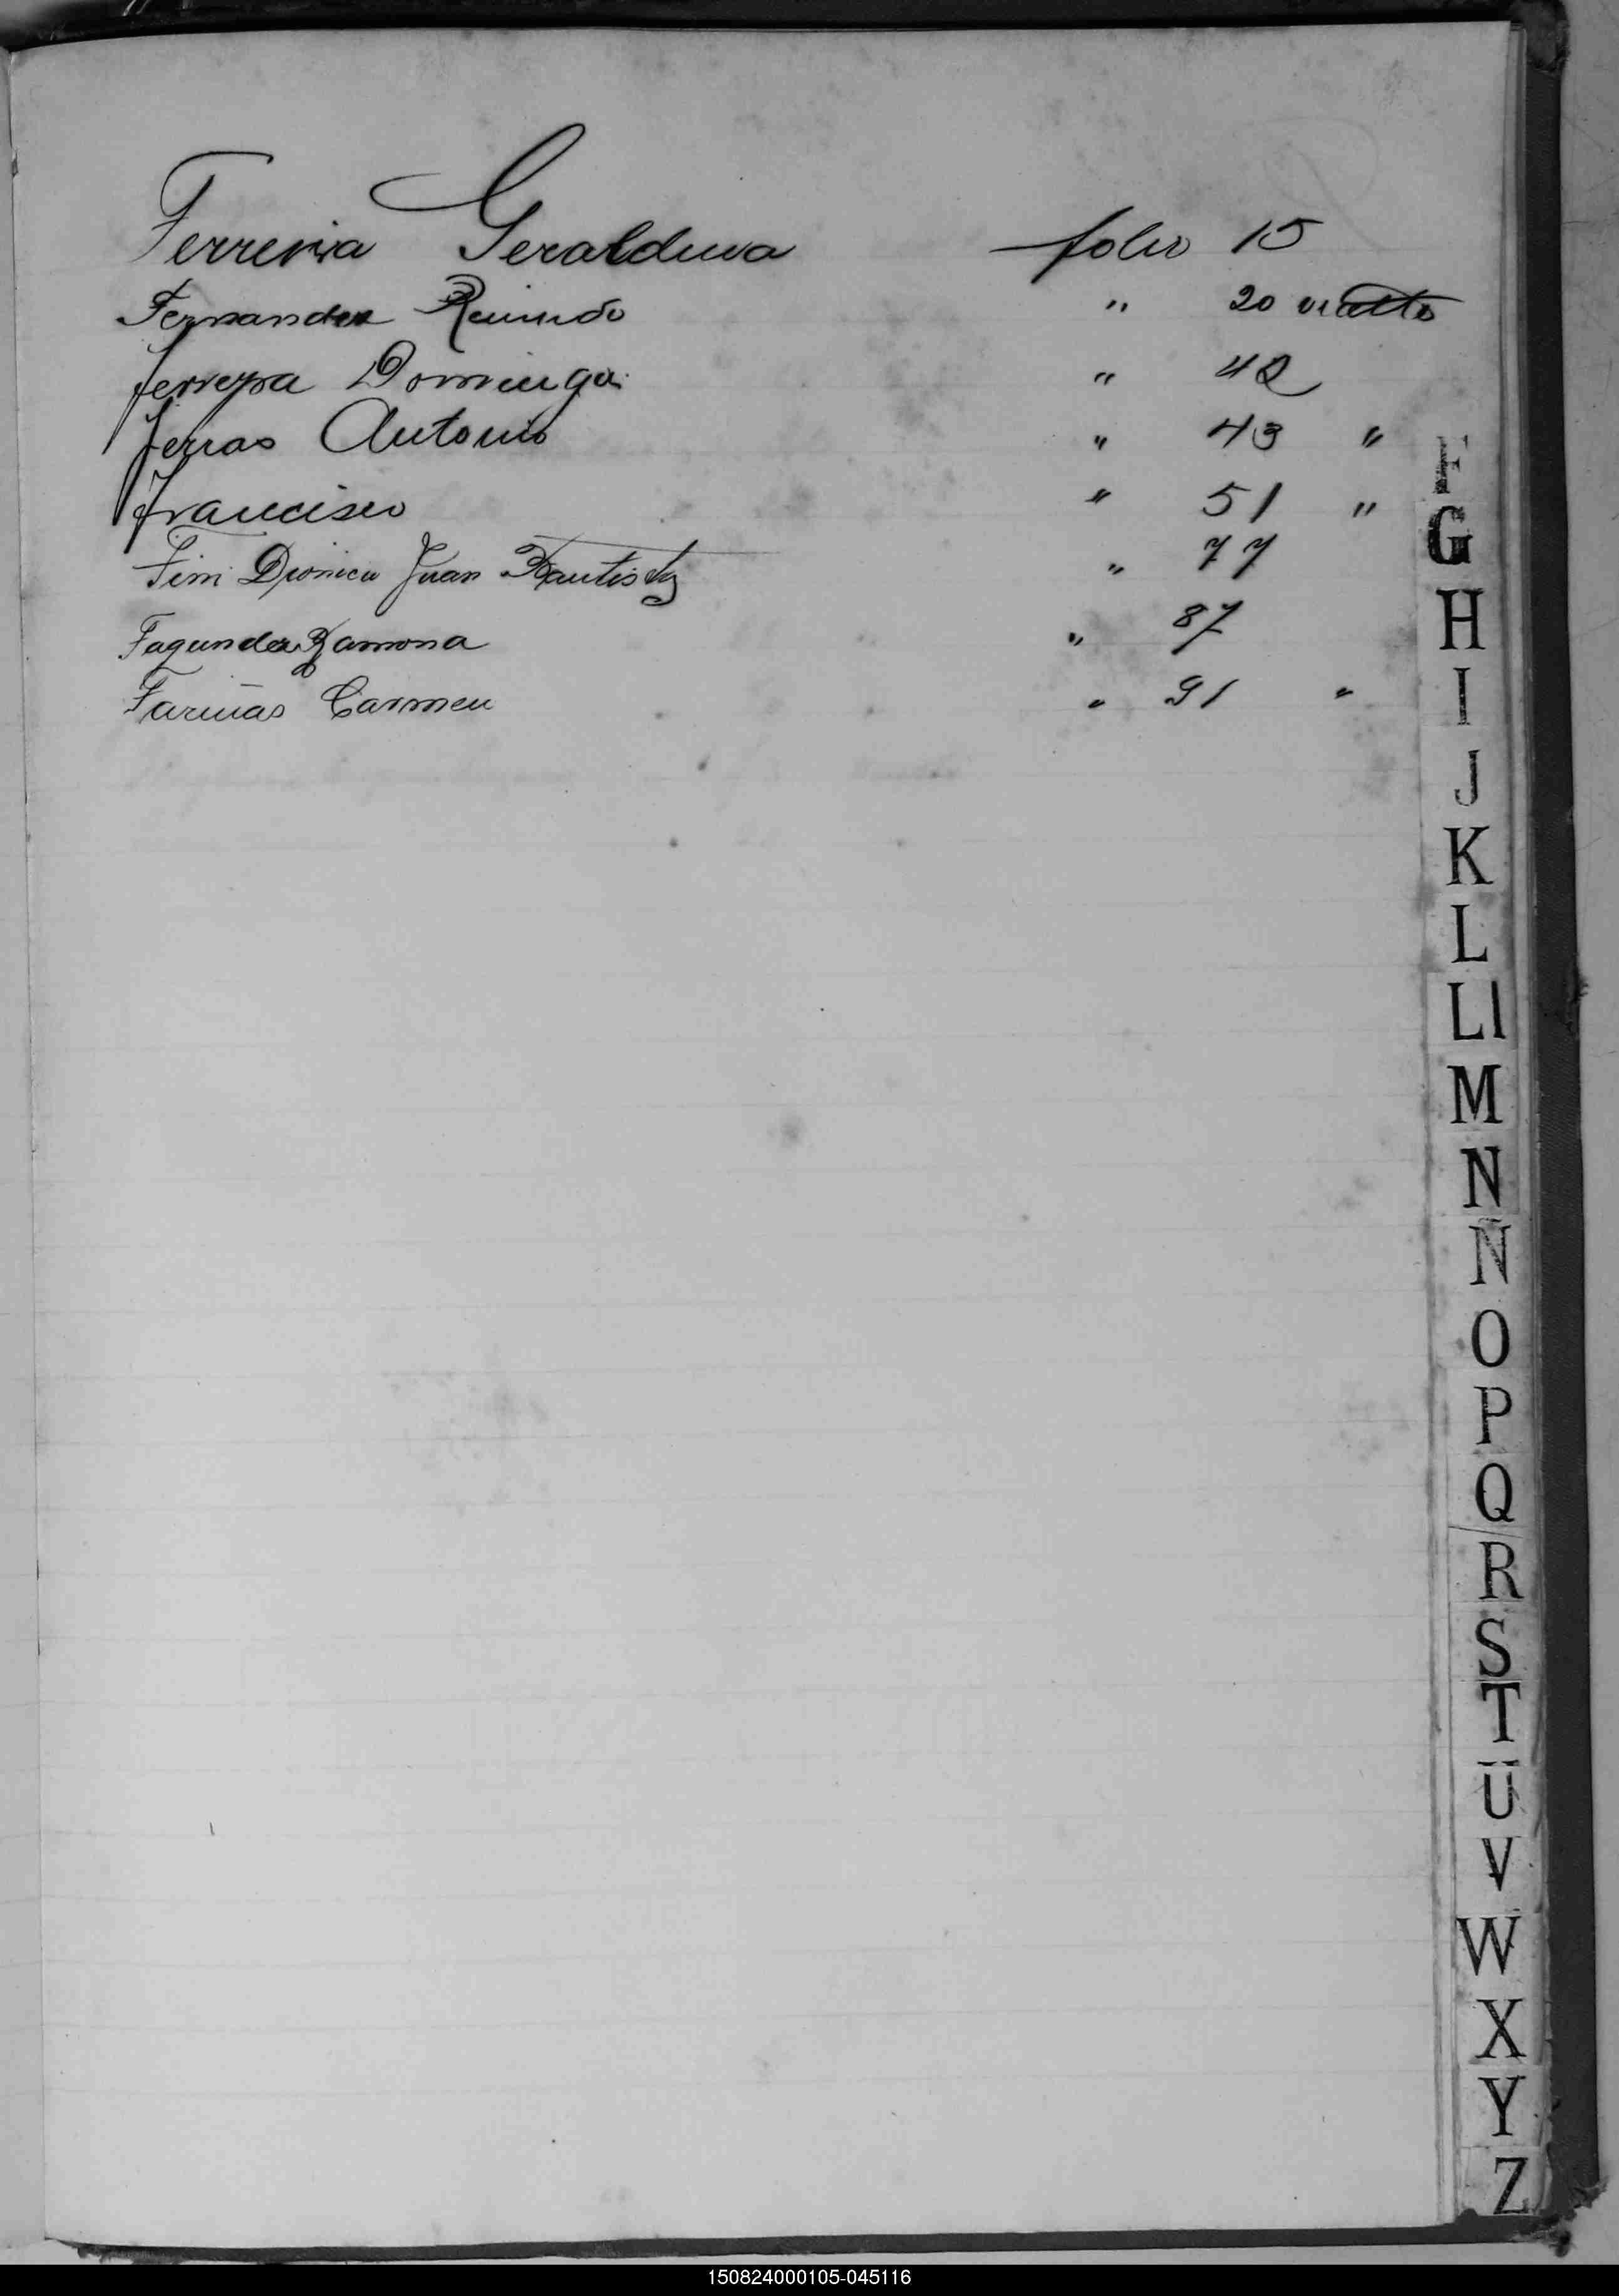 Ferreira Geraldina folio 15
Fernandez Raimundo " 20 vuelto
Ferreyra Dominga " 42
Ferras Antonio " 43 "
Francisco " 51 "
Fini Juan Bautista " 77
Fagundez Ramona " 87
Fariñas Carmen " 91 "
F
G
H
I
J
K
L
Ll
M
N
Ñ
O
P
Q
R
S
T
U
V
W
X
Y
Z
150824000105-045116